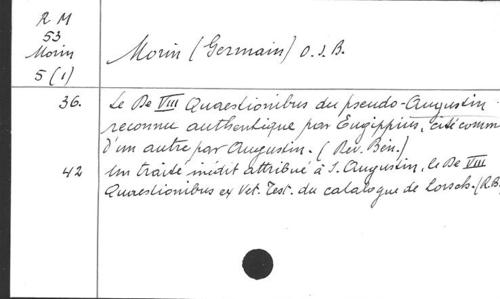 R M
53
Morin
5 (1)
Morin (Germain) O.S.B.
36. Le De VIII Quaestionibus du pseudo-Augustin
reconnu authentique par Eugippius, cité comme
d'un autre par Augustin. (Rev. Bén.)
42 Un traité inédit attribué à S. Augustin, le De VIII
Quaestionibus ex Vet. Test. du catalogue de Lorsch. (R.B.